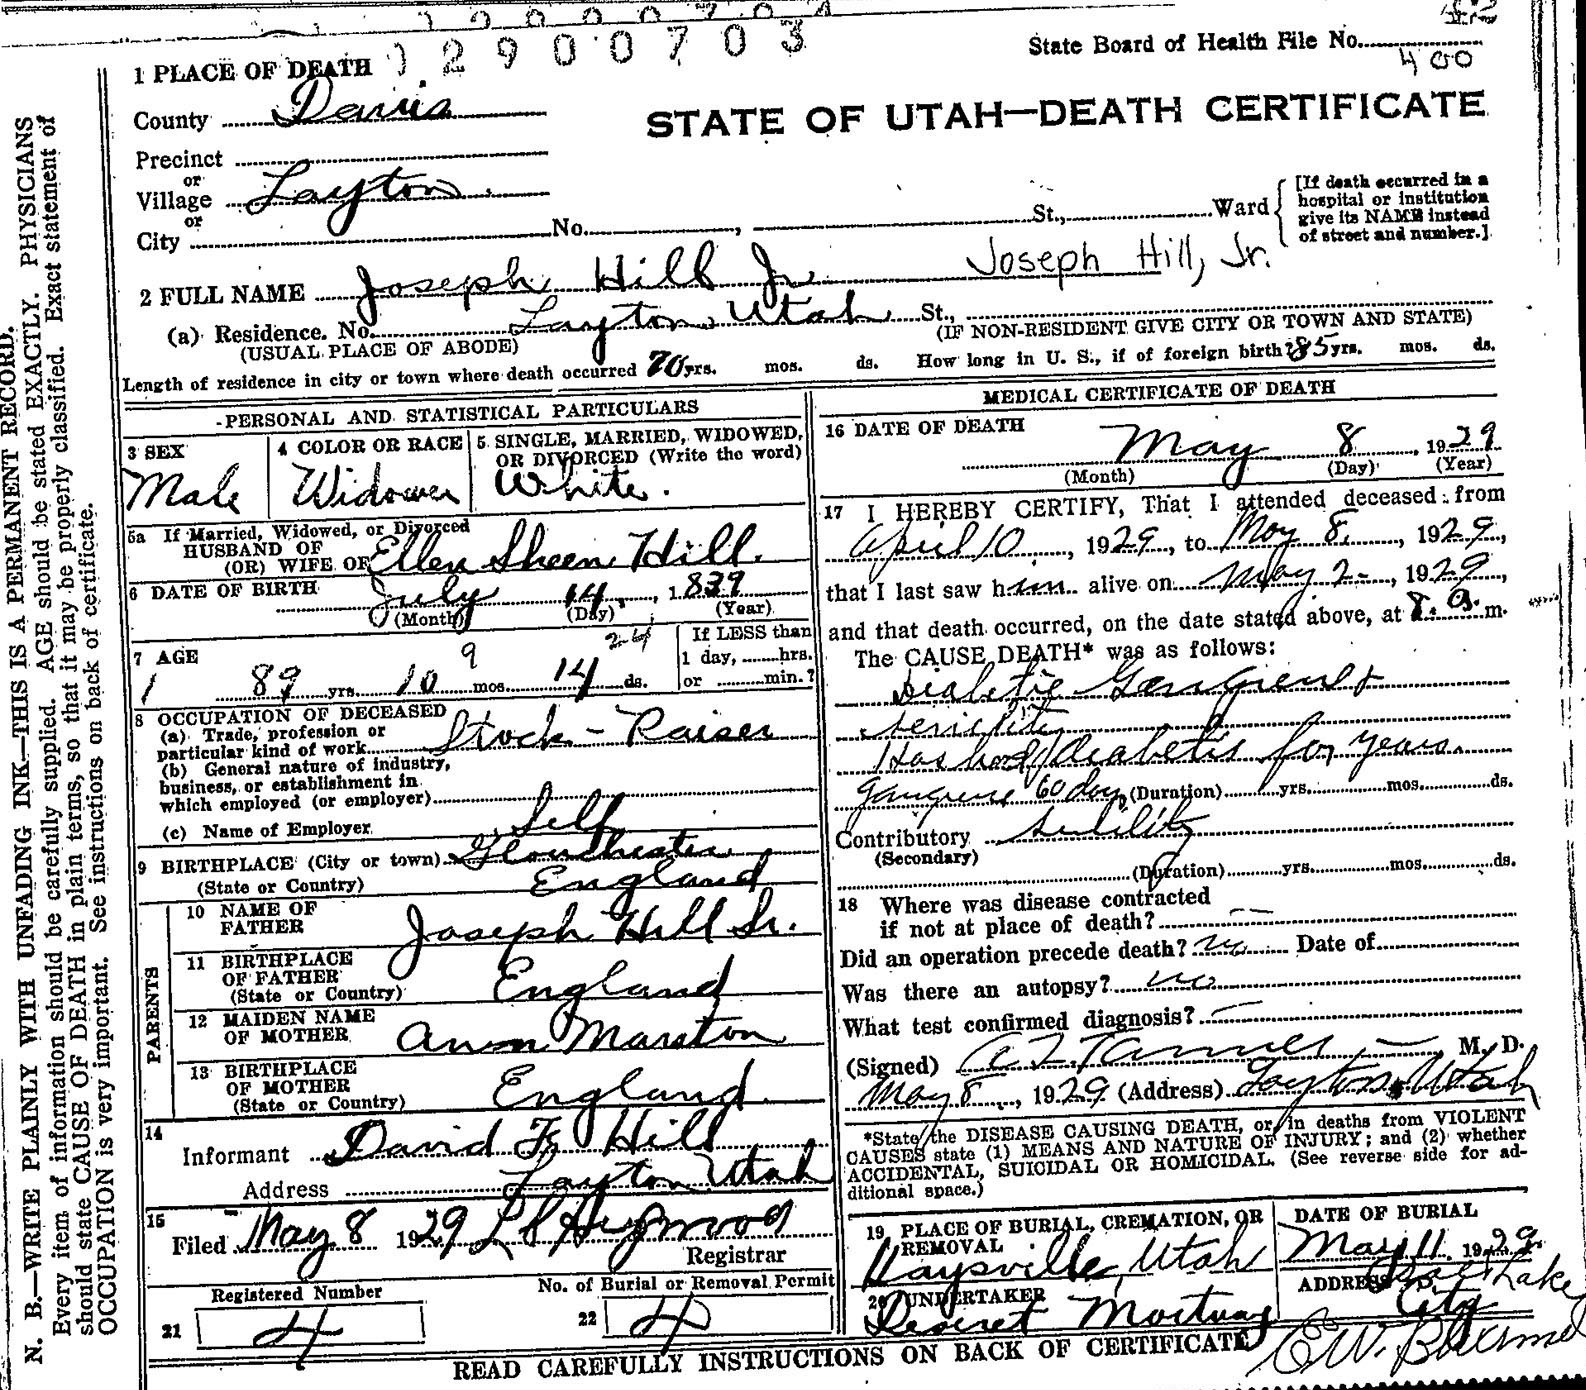 2900703
State Board of Health File No.
400
1 PLACE OF DEATH
County Davis
STATE OF UTAH—DEATH CERTIFICATE
Precinct
or
Village Layton
or
City No. , St., Ward
[If death occurred in a
hospital or institution
give its NAME instead
of street and number.]
2 FULL NAME Joseph Hill Jr Joseph Hill, Jr.
(a) Residence. No. Layton, Utah St.,
(USUAL PLACE OF ABODE) (IF NON-RESIDENT GIVE CITY OR TOWN AND STATE)
Length of residence in city or town where death occurred 70 yrs. mos. ds. How long in U. S., if of foreign birth? 85 yrs. mos. ds.
PERSONAL AND STATISTICAL PARTICULARS
3 SEX
Male
4 COLOR OR RACE
Widower
5 SINGLE, MARRIED, WIDOWED,
OR DIVORCED (Write the word)
White.
5a If Married, Widowed, or Divorced
HUSBAND OF
(OR) WIFE OF Ellen Sheen Hill.
6 DATE OF BIRTH July 14, 1839
(Month) (Day) (Year)
7 AGE 9 24
89 yrs 10 mos 14 ds.
If LESS than
1 day, hrs.
or min.?
8 OCCUPATION OF DECEASED
(a) Trade, profession or
particular kind of work Stock-Raiser
(b) General nature of industry,
business, or establishment in
which employed (or employer)
(c) Name of Employer Self
9 BIRTHPLACE (City or town) Glouchester
(State or Country) England
PARENTS
10 NAME OF
FATHER Joseph Hill Sr.
11 BIRTHPLACE
OF FATHER
(State or Country) England
12 MAIDEN NAME
OF MOTHER Ann Marston
13 BIRTHPLACE
OF MOTHER
(State or Country) England
14
Informant David F. Hill
Address Layton Utah
15
Filed May 8 1929
Registrar
Registered Number
21 4
No. of Burial or Removal Permit
22 4
MEDICAL CERTIFICATE OF DEATH
16 DATE OF DEATH
May 8, 1929
(Month) (Day) (Year)
17 I HEREBY CERTIFY, That I attended deceased from
April 10, 1929, to May 8, 1929,
that I last saw him alive on May 2, 1929,
and that death occurred, on the date stated above, at 8. a. m.
The CAUSE DEATH* was as follows:
Diabetic Gangrene &
senility
Has had diabetis for years
gangrene 60 days (Duration) yrs. mos. ds.
Contributory senility
(Secondary)
(Duration) yrs. mos. ds.
18 Where was disease contracted
if not at place of death? —
Did an operation precede death? no Date of
Was there an autopsy? no
What test confirmed diagnosis? —
(Signed) A Z Tanner M. D.
May 8, 1929 (Address) Layton, Utah
*State the DISEASE CAUSING DEATH, or in deaths from VIOLENT
CAUSES state (1) MEANS AND NATURE OF INJURY; and (2) whether
ACCIDENTAL, SUICIDAL OR HOMICIDAL. (See reverse side for ad-
ditional space.)
19 PLACE OF BURIAL, CREMATION, OR
REMOVAL
Kaysville, Utah
DATE OF BURIAL
May 11, 1929
20 UNDERTAKER
Deseret Mortuary
ADDRESS Salt Lake
City
READ CAREFULLY INSTRUCTIONS ON BACK OF CERTIFICATE
N. B.—WRITE PLAINLY WITH UNFADING INK—THIS IS A PERMANENT RECORD.
Every item of information should be carefully supplied. AGE should be stated EXACTLY. PHYSICIANS
should state CAUSE OF DEATH in plain terms, so that it may be properly classified. Exact statement of
OCCUPATION is very important. See instructions on back of certificate.